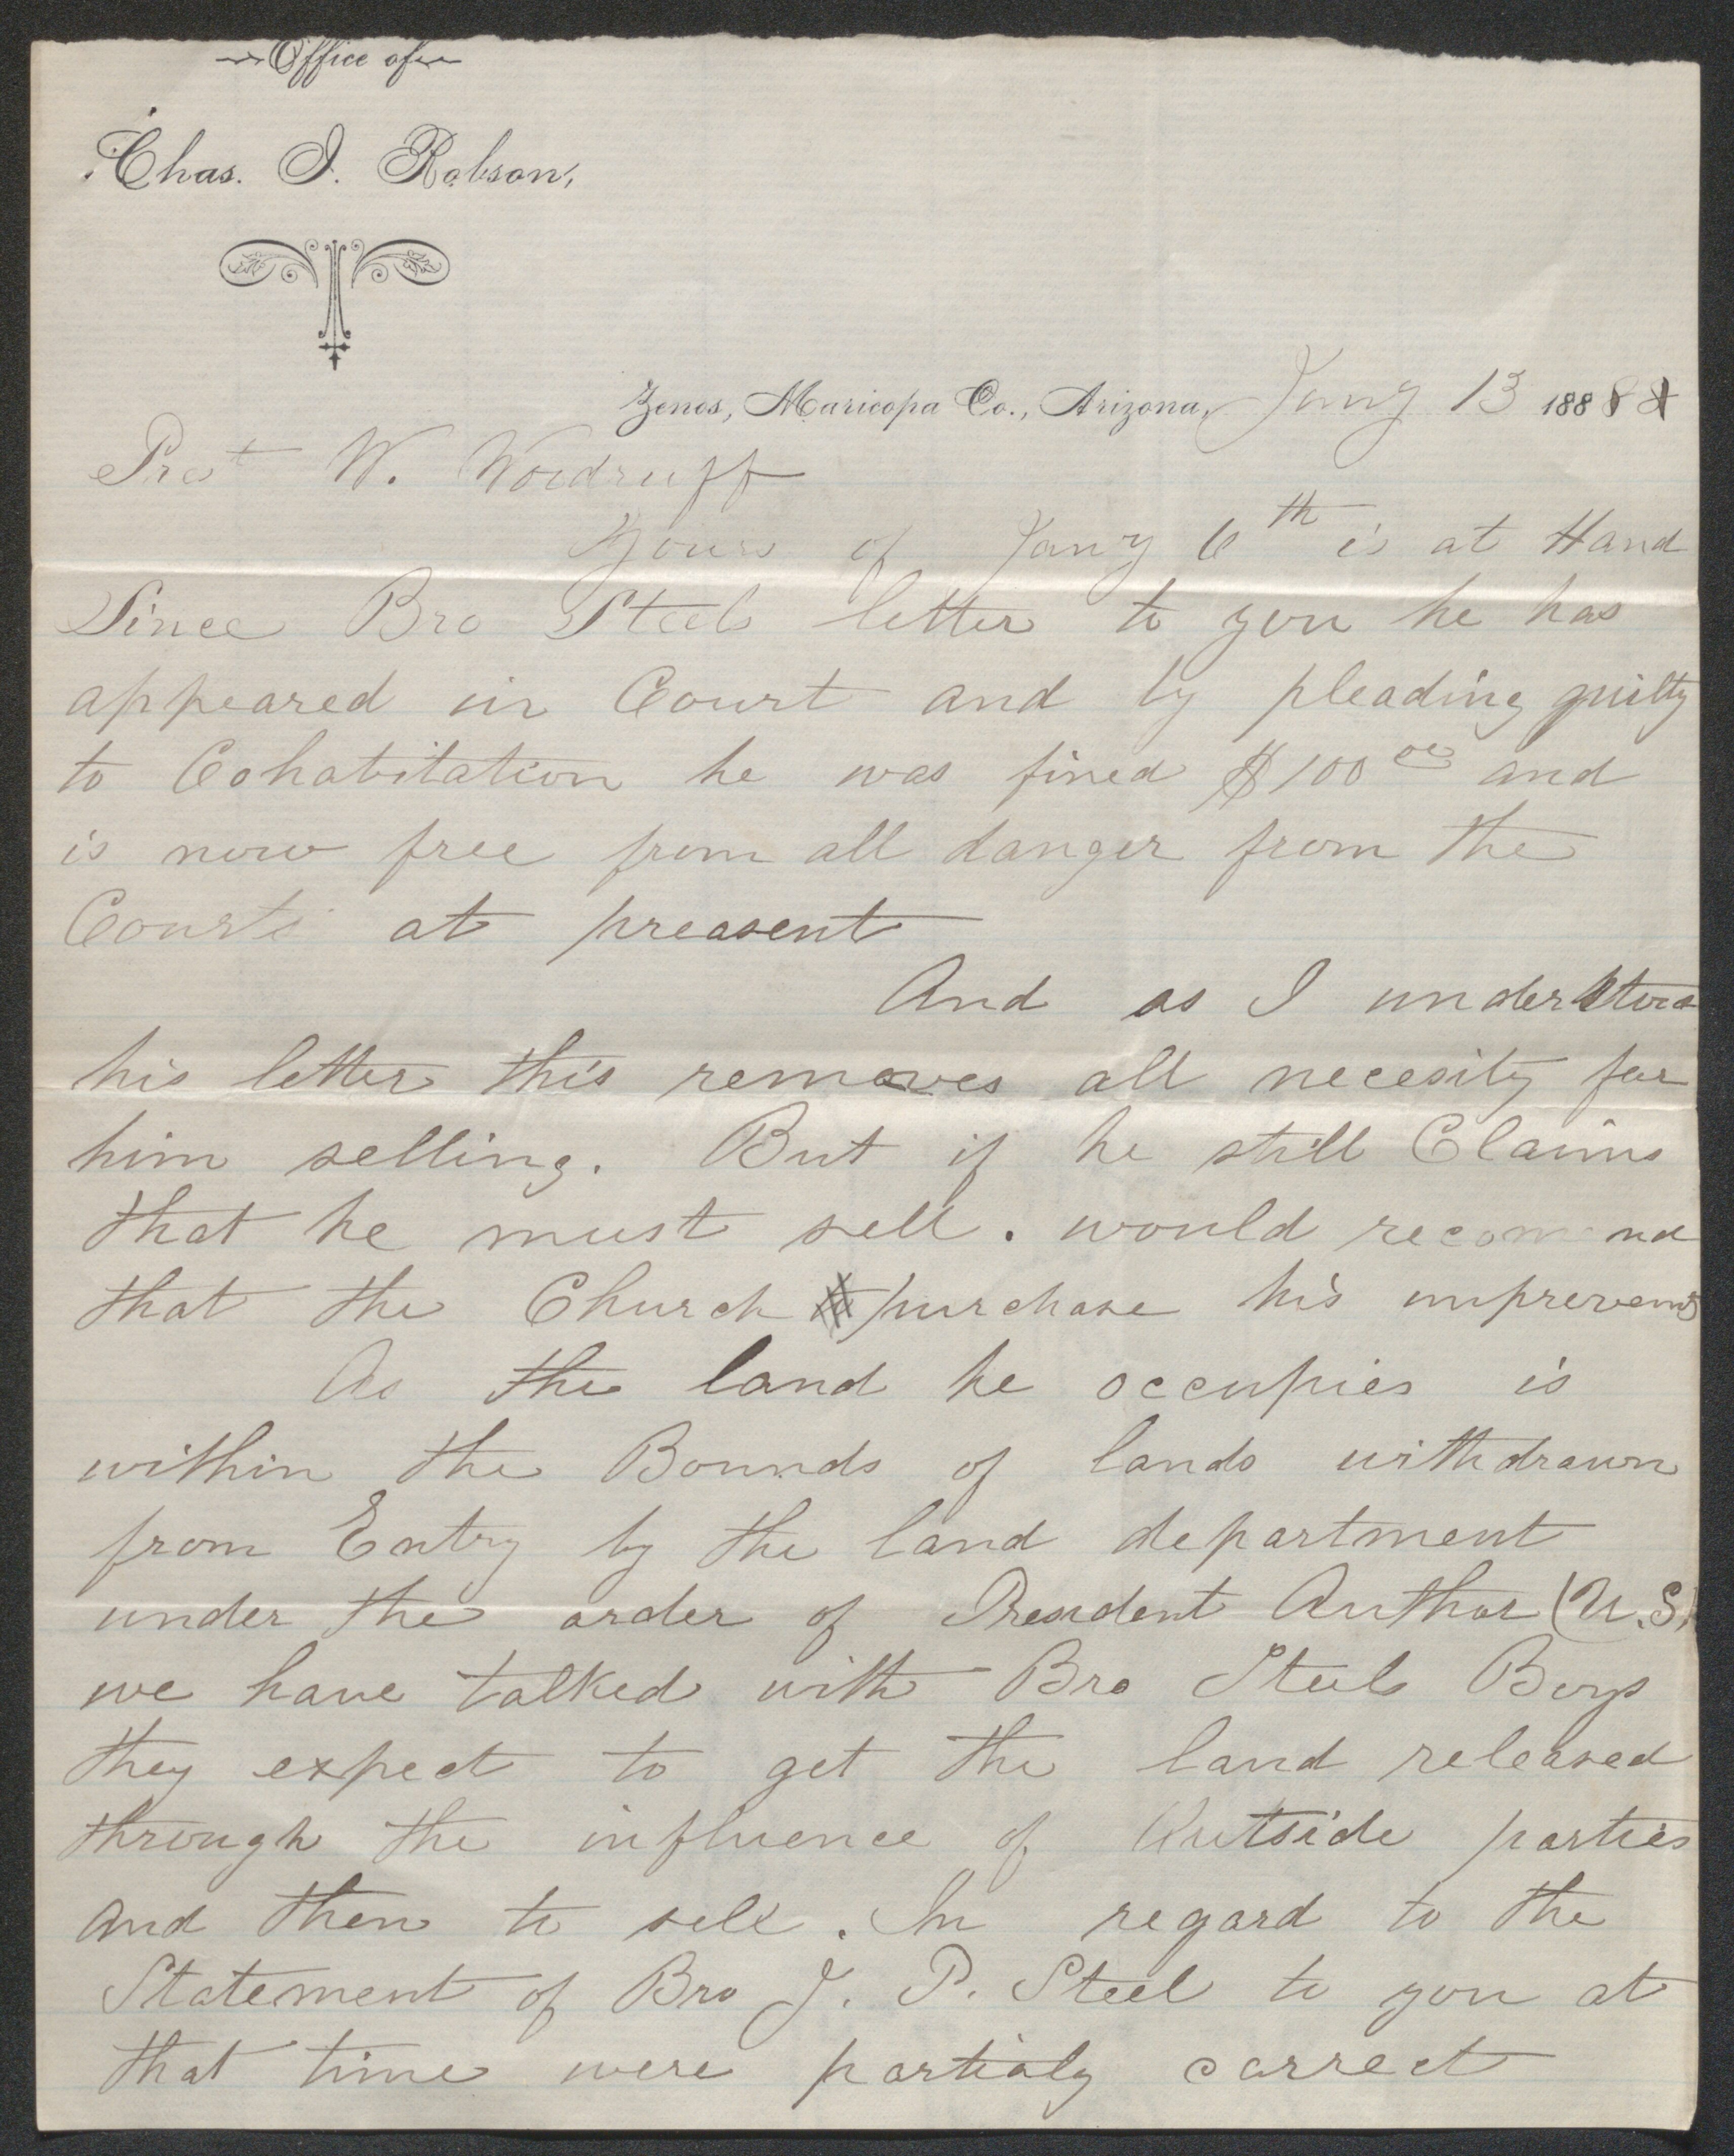 Office of
Chas. I. Robson,
Zenos, Maricopa Co., Arizona, Jany 13 1888
Prest W. Woodruff
Yours of Jany 6th is at Hand
Since Bro Steels letter to you he has
appeared in Court and by pleading guilty
to Cohabitation he was fined $100 00 and
is now free from all danger from the
Courts at preasent
And as I understood
his letter this removes all necesity for
him selling. But if he still Claims
that he must sell. would recomend
that the Church purchase his improvemts
As the land he occupies is
within the Bounds of lands withdrawn
from Entry by the land department
under the order of President Author (U.S.)
we have talked with Bro Steels Boys
they expect to get the land released
through the influence of Outside parties
and then to sell. In regard to the
Statement of Bro J. P. Steel to you at
that time were partialy correct